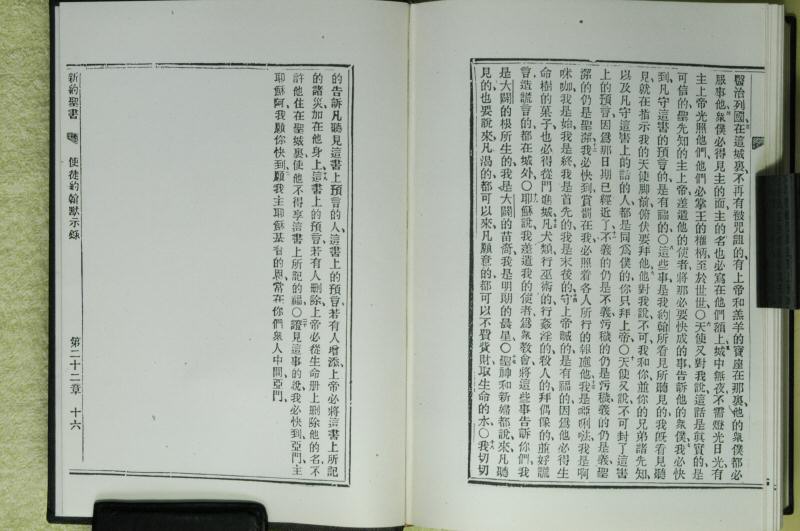 醫治列國、在這城裏、不再有被咒詛的、有上帝和羔羊的寶座在那裏、他的衆僕都必
服事他、衆僕必得見主的面、主的名也必寫在他們額上、城中無夜、不需燈光日光、有
主上帝光照他們、他們必掌王的權柄、至於世世、○天使又對我說、這話是真實的、是
可信的、聖先知的主上帝、差遣他的使者、將那必要快成的事、告訴他的衆僕、我必快
到、凡守這書的預言的、是有福的、○這些事是我約翰所看見所聽見的、我既看見聽
見、就在指示我的天使脚前、俯伏要拜他、他對我說、不可、我和你並你的兄弟諸先知、
以及凡守這書上的話的人、都是同爲僕的、你只拜上帝、○天使又說、不可封了這書
上的預言、因爲那日期已經近了、不義的仍是不義、污穢的仍是污穢、義的仍是義、聖
潔的仍是聖潔、我必快到、賞罰在我、必照着各人所行的報應他、我是啞唎㖿、我是啊
咪咖、我是始、我是終、我是首先的、我是末後的、守上帝誡的是有福的、因爲他必得生
命樹的菓子、也必得從門進城、凡犬類、行巫術的、行姦淫的、殺人的、拜偶像的、並好謊
言造謊言的、都在城外、○耶穌說、我差遣我的使者、爲衆敎會將這些事告訴你們、我
是大闢的根所生的、我是大闢的苗裔、我是明朗的晨星、○聖神和新婦都說來、凡聽
見的也要說來、凡渴的都可以來、凡願意的都可以不費貲財、取生命的水、○我切切
的告訴凡聽見這書上預言的人、這書上的預言、若有人增添、上帝必將這書上所記
的諸災加在他身上、這書上的預言、若有人删除、上帝必從生命册上删除他的名、不
許他住在聖城裏、使他不得享這書上所記的福、○證見這事的說、我必快到、亞門、主
耶穌阿、我願你快到、願我主耶穌基督的恩、常在你們衆人中間、亞門、
新約聖書 使徒約翰默示錄 第二十二章 十六